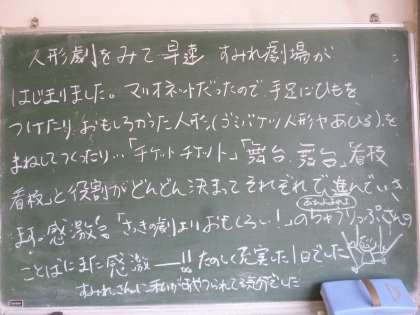 人形劇をみて早速 すみれ劇場が
はじまりました。マリオネットだったので、手足にひもを
つけたり、おもしろかった人形(ゴミバケツ人形やあひる)を
まねしてつくったり…「チケットチケット」「舞台、舞台」「看板
看板」と役割がどんどん決まってそれぞれで進んでいき
ます。感激!!「さっきの劇よりおもしろい!」のちゅうりっぷさんの
ことばにまた感激――!! たのしく充実した1日でした
すみれさんに私があやつられてる気分でした